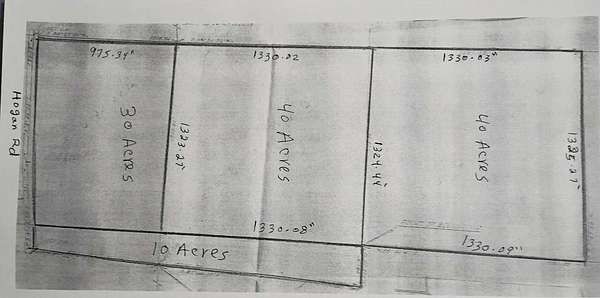 975.34"
1330.02
1330.03"
Hogan Rd
30 Acres
1323.27"
40 Acres
1324.44"
40 Acres
1325.27"
1330.08"
1330.09"
10 Acres